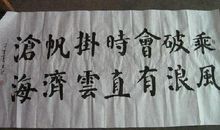 乘風
破浪
會有
時直
掛雲
帆濟
滄海